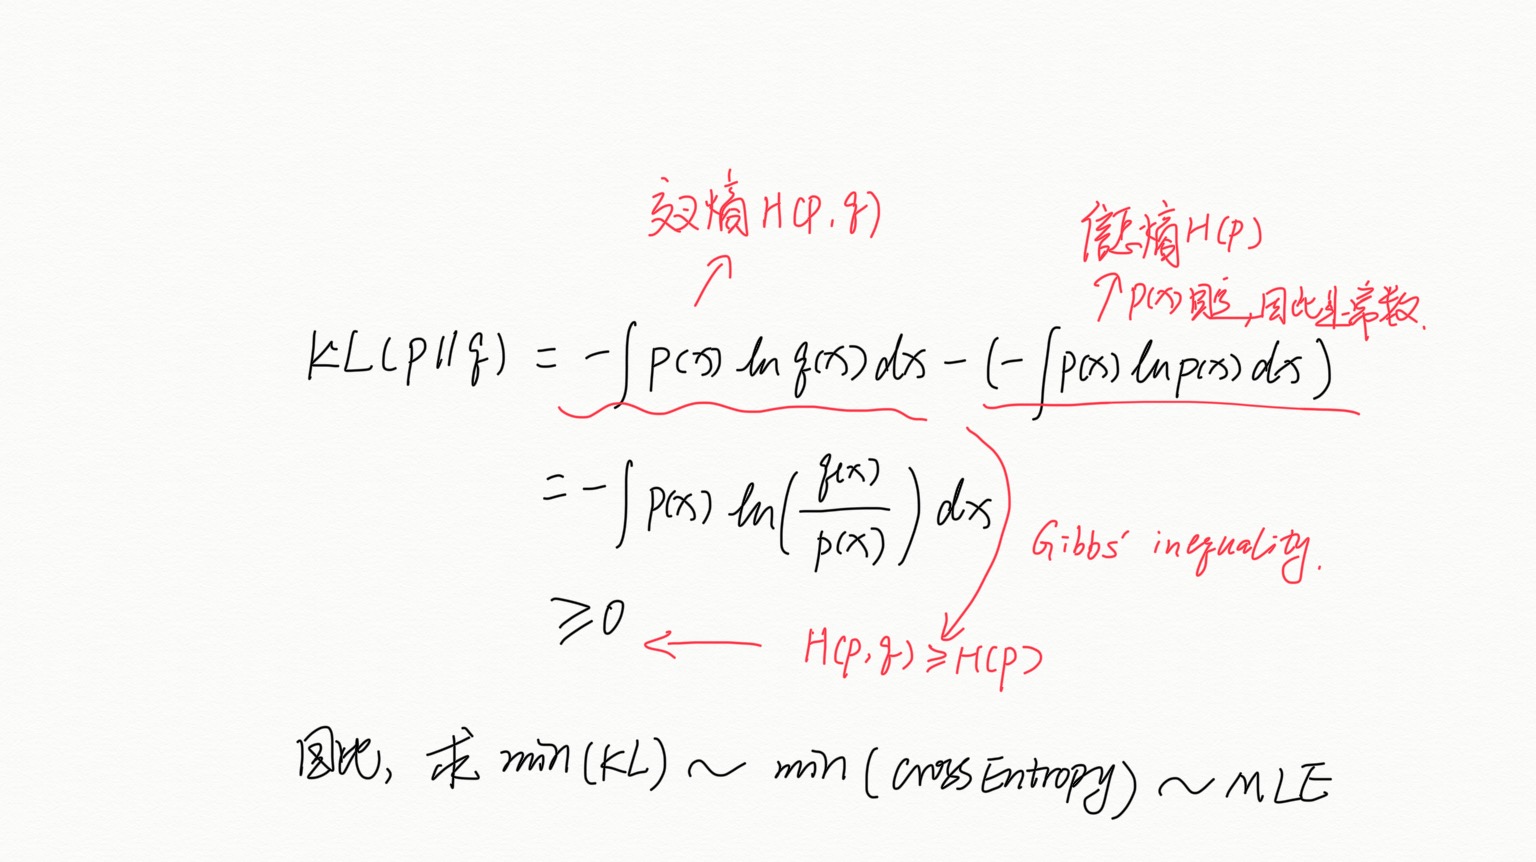 交叉熵 H(p,q)
信息熵 H(p)
p(x)固定,因此是常数.
KL(p||q) = -∫p(x) ln q(x) dx - (-∫p(x) ln p(x) dx)
= -∫p(x) ln(q(x)/p(x)) dx
Gibbs' inequality.
≥0
H(p,q) ≥ H(p)
因此, 求 min(KL) ~ min(cross Entropy) ~ MLE